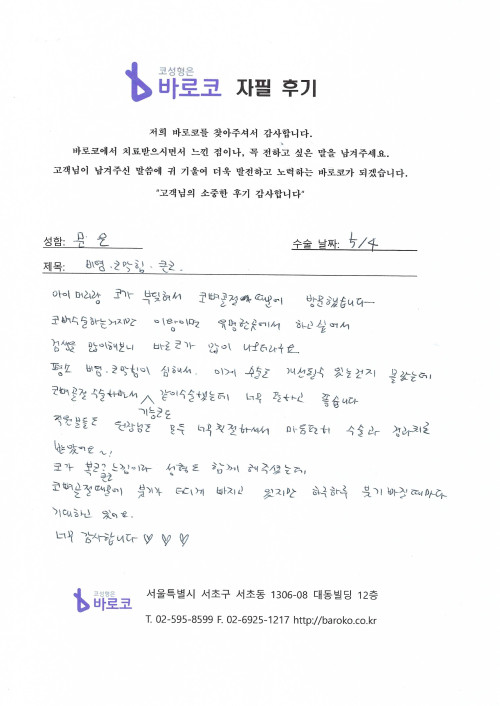 코성형은
바로코 자필 후기
저희 바로코를 찾아주셔서 감사합니다.
바로코에서 치료받으시면서 느낀 점이나, 꼭 전하고 싶은 말을 남겨주세요.
고객님이 남겨주신 말씀에 귀 기울여 더욱 발전하고 노력하는 바로코가 되겠습니다.
"고객님의 소중한 후기 감사합니다"
성함: 문 온 수술 날짜: 5/4
제목: 비염·코막힘·큰코
아이 머리랑 코가 부딪혀서 코뼈골절때문에 방문했습니다
코뼈수술하는거지만 이왕이면 유명한곳에서 하고싶어서
검색을 많이해보니 바로코가 많이 나오더라구요
평소 비염·코막힘이 심해서. 이게 수술로 개선될수 있는건지 몰랐는데
코뼈골절 수술하면서 기능코도 같이수술했는데 너무 편하고 좋습니다
직원분들도 원장님도 모두 너무 친절하셔서 마음편히 수술과 경과치료
받았어요~!
코가 복코? 큰코 느낌이라 성형도 함께 해주셨는데
코뼈골절때문에 붓기가 더디게 빠지고 있지만 하루하루 붓기 빠질때마다
기대하고 있어요.
너무 감사합니다 ♡ ♡ ♡
코성형은
바로코
서울특별시 서초구 서초동 1306-08 대동빌딩 12층
T. 02-595-8599 F. 02-6925-1217 http://baroko.co.kr